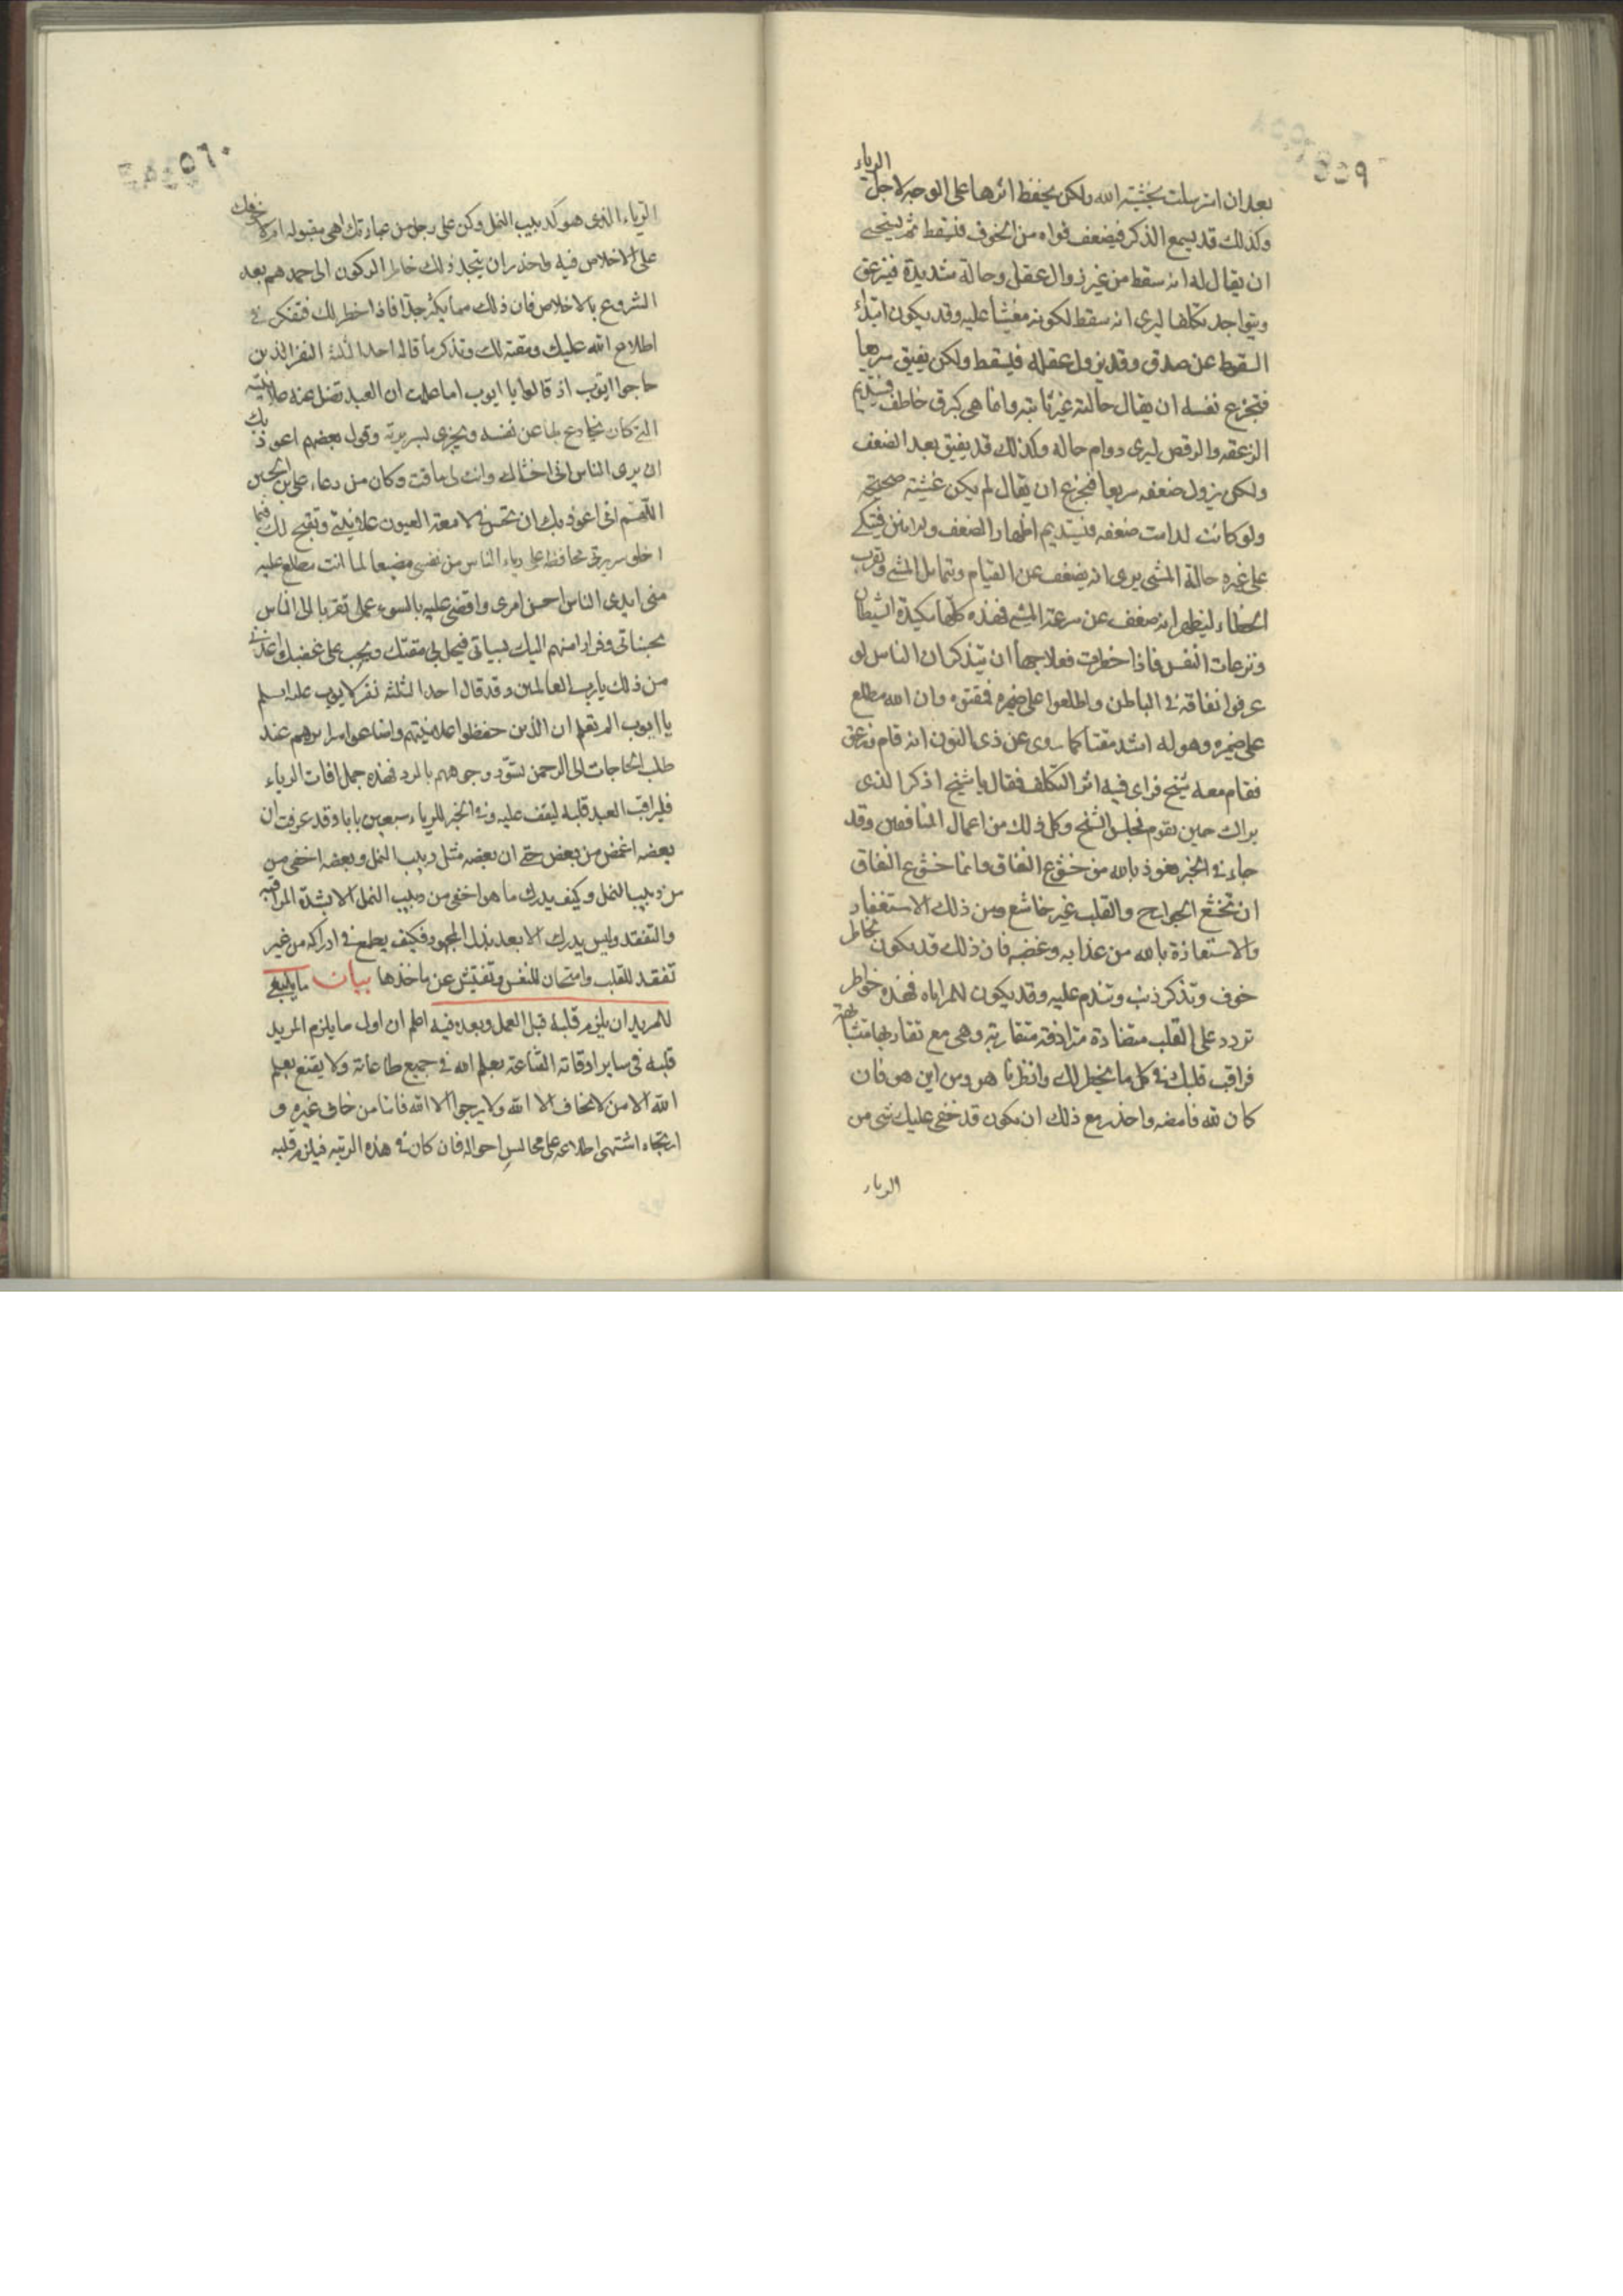 ٥٥٩
بعد ان استرسلت بخشية الله ولكن يحفظ اثرها على الوجه لاجل الرياء
وكذلك قد يسمع الذكر فيضعف قواه من الخوف فيسقط ثم يستحيى
ان يقال له انه سقط من غير زوال عقل وحالة شديدة فيزعق
ويتواجد تكلفا ليرى انه سقط لكونه مغشيا عليه وقد يكون ابتداء
السقوط عن صدق وقد يزول عقله فيسقط ولكن يفيق سريعا
فتجزع نفسه ان يقال حالته غير ثابتة وانما هي كبرق خاطف فيستديم
الزعقه والرقص ليرى دوام حاله وكذلك قد يفيق بعد الضعف
ولكن يزول ضعفه سريعا فيجزع ان يقال لم يكن غشيته صحيحة
ولو كانت لدامت ضعفه فيستديم اظهار الضعف والانين فيتكى
على غيره حالة المشى يرى انه يضعف عن القيام ويتمايل المشى ويقرب
الخطاء ليظهر انه ضعف عن سرعة المشى فهذه كلها مكيدة الشيطان
ونزعات النفس فاذا خطرت فعلاجها ان يتذكر ان الناس لو
عرفوا نفاقه في الباطن واطلعوا على ضميره لمقتوه وان الله مطلع
على ضميره وهو له اشد مقتا كما روى عن ذى النون انه قام وزعق
فقام معه شيخ فراى فيه اثر التكلف فقال يا شيخ اذكر الذى
يراك حين تقوم فجلس الشيخ وكل ذلك من اعمال المنافقين وقد
جاء في الخبر نعوذ بالله من خشوع النفاق وانما خشوع النفاق
ان تخشع الجوارح والقلب غير خاشع ومن ذلك الاستغفار
والاستعاذة بالله من عذابه وغضبه فان ذلك قد يكون لخاطر
خوف وتذكر ذنب وتندم عليه وقد يكون للمراياه فهذه خواطر
تردد على القلب متضادة مترادفة متقاربة وهى مع تقاربها متشابهة
فراقب قلبك في كل ما يخطر لك وانظر ما هو ومن اين هو فان
كان لله فامضه واحذر مع ذلك ان يكون قد خفى عليك شى من
الرياء
٥٦٠
الرياء الذى هو كدبيب النمل وكن على وجل من عبادتك اهى مقبوله ام لا لخوفك
على الاخلاص فيه واحذر ان يتجدد لك خاطر الركون الى حمدهم بعد
الشروع بالاخلاص فان ذلك مما يكثر جدا فاذا خطر لك فتفكر في
اطلاع الله عليك ومقته لك وتذكر ما قاله احد الثلثة النفر الذين
حاجوا ايوب اذ قالوا يا ايوب اما علمت ان العبد تضل عنه علانيته
التي كان يخادع بها عن نفسه ويجزى بسريرته وقول بعضهم اعوذ بك
ان يرى الناس انى اخشاك وانت لى ماقت وكان من دعاء على بن الحسين
اللهم انى اعوذ بك ان تحسن في لامعة العيون علانيتي وتقبح لك فيما
اخلو سريرتى محافظا على رياء الناس من نفسى مضيعا لما انت مطلع عليه
منى ابدى للناس احسن امرى وافضى عليه بالسوء عملى تقربا الى الناس
بحسناتى وفرارا منهم اليك بسياتى فيحل بى مقتك ويجب على غضبك اعذنى
من ذلك يا رب العالمين وقد قال احد الثلثة نفر لايوب عليه السلم
يا ايوب الم تعلم ان الذين حفظوا علانيتهم واضاعوا اسرارهم عند
طلب الحاجات الى الرحمن تسود وجوههم بالرد فهذه جمل افات الرياء
فليراقب العبد قلبه ليقف عليه وفي الخبر للرياء سبعين بابا وقد عرفت ان
بعضه اغمض من بعض حتى ان بعضه مثل دبيب النمل وبعضه اخفى من
من دبيب النمل وكيف يدرك ما هو اخفى من دبيب النمل الا بشدة المراقبة
والتفقد وليس يدرك الا بعد بذل المجهود فكيف يطمع في ادراكه من غير
تفقد للقلب وامتحان للنفس وتفتيش عن ماخذها بيان ما ينبغى
للمريد ان يلزم قلبه قبل العمل وبعده فيه اعلم ان اول ما يلزم المريد
قلبه في ساير اوقاته القناعة بعلم الله في جميع طاعاته ولا يقنع بعلم
الله الا من لا يخاف الا الله ولا يرجو الا الله فاما من خاف غيره و
ارتجاه اشتهى اطلاعه على محالس احواله فان كان في هذه الرتبه فيلزم قلبه